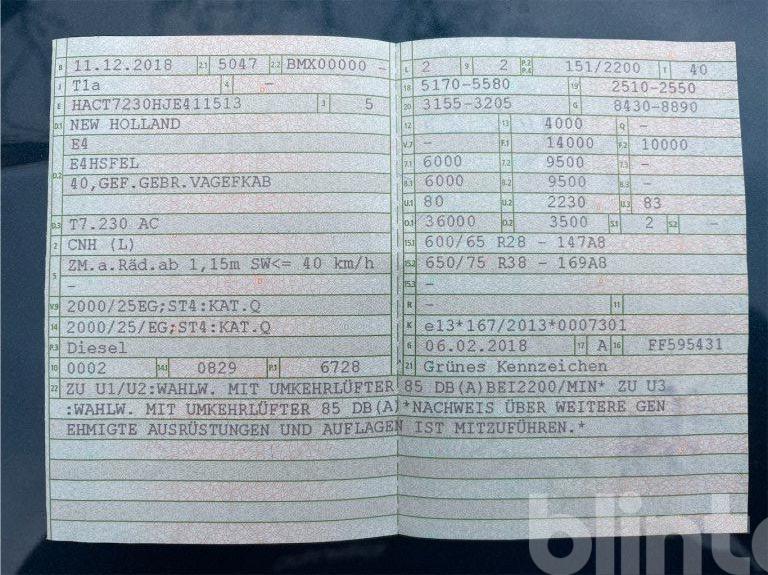 B 11.12.2018 2.1 5047 2.2 BMX00000 -
J T1a 4 -
E HACT7230HJE411513 3 5
D.1 NEW HOLLAND
E4
D.2 E4HSFEL
40,GEF.GEBR.VAGEFKAB
D.3 T7.230 AC
2 CNH (L)
5 ZM.a.Räd.ab 1,15m SW<= 40 km/h
-
V.9 2000/25EG;ST4:KAT.Q
14 2000/25/EG;ST4:KAT.Q
P.3 Diesel
10 0002 14.1 0829 P.1 6728
L 2 9 2 P.2 P.4 151/2200 T 40
18 5170-5580 19 2510-2550
20 3155-3205 G 8430-8890
12 - 13 4000 Q -
V.7 - F.1 14000 F.2 10000
7.1 6000 7.2 9500 7.3 -
8.1 6000 8.2 9500 8.3 -
U.1 80 U.2 2230 U.3 83
O.1 36000 O.2 3500 S.1 2 S.2 -
15.1 600/65 R28 - 147A8
15.2 650/75 R38 - 169A8
15.3 -
R - 11
K e13*167/2013*0007301
6 06.02.2018 17 A 16 FF595431
21 Grünes Kennzeichen
22 ZU U1/U2:WAHLW. MIT UMKEHRLÜFTER 85 DB(A)BEI2200/MIN* ZU U3
:WAHLW. MIT UMKEHRLÜFTER 85 DB(A)*NACHWEIS ÜBER WEITERE GEN
EHMIGTE AUSRÜSTUNGEN UND AUFLAGEN IST MITZUFÜHREN.*